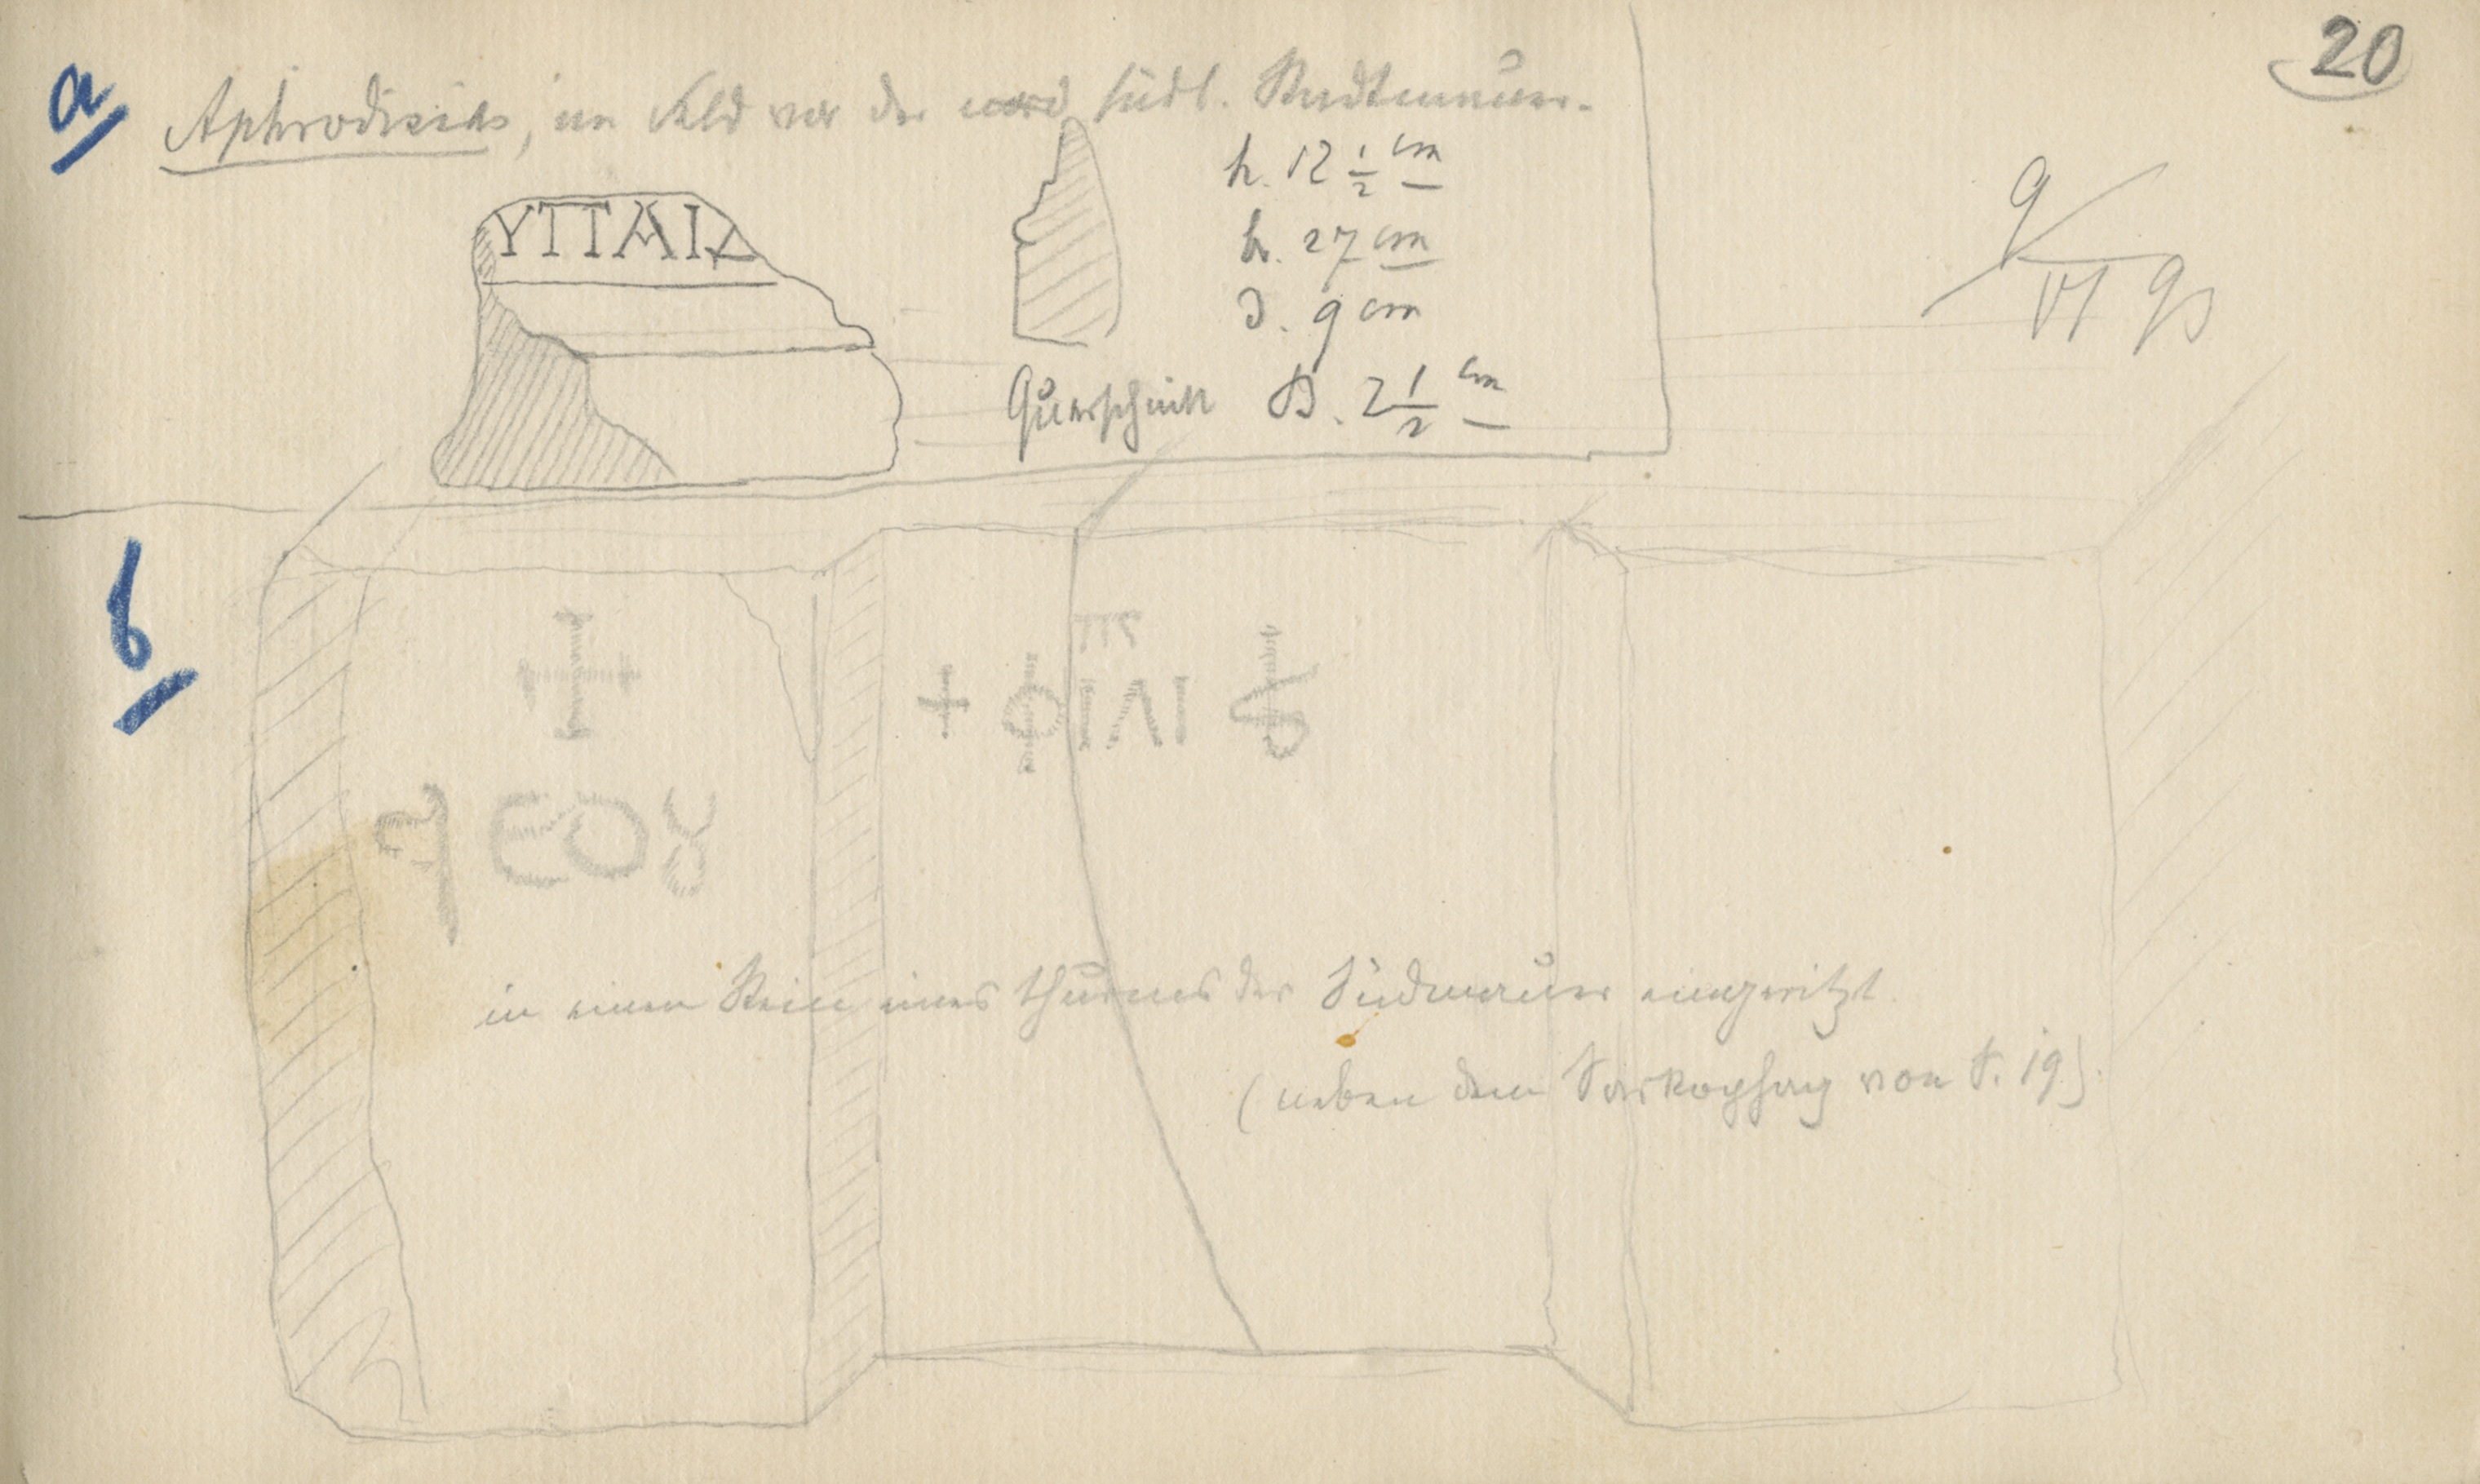 20
a
Aphrodisias, im Feld vor der nord südl. Stadtmauer.
ΥΠΑΙΔ
h. 12 ½ cm
b. 27 cm
d. 9 cm
Querschnitt B. 2 ½ cm
9/VI 93
b
+ ΦΙΛΙ
ΘΕΟΥ
in einen Stein eines Thurmes der Südmauer eingeritzt.
(neben dem Sarkophag von S. 19)